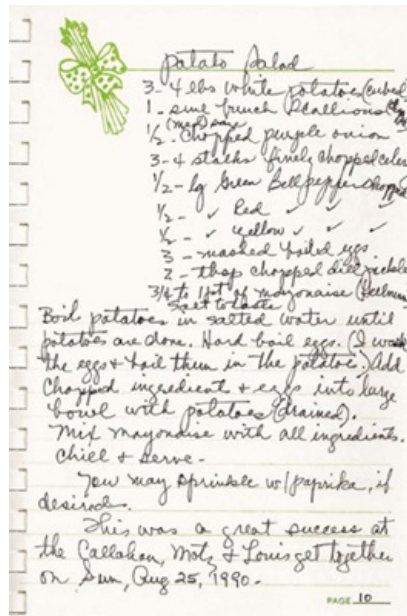 Potato Salad
3-4 lbs white potatoes (cubed
1 - bunch scallions
(med) size
1/2 - chopped purple onion
3-4 stalks finely chopped celery
1/2 - lg Green Bell pepper chopped
1/2 - ✓ Red ✓ ✓
1/2 - ✓ yellow ✓ ✓
3 - mashed boiled eggs
2 - tbsp chopped dill pickle
3/4 to 1 of mayonaise
salt to taste
Boil potatoes in salted water until
potatoes are done. Hard boil eggs. (I wash
the eggs & boil them in the potatoe.) Add
chopped ingredient & eggs into large
bowl with potatoes (drained).
Mix mayonaise with all ingredients.
Chill & serve -
You may sprinkle w/ paprika, if
desired.
This was a great success at
the Callahan, Motz & Louis get together
on Sun, Aug 25, 1990 -
PAGE 10